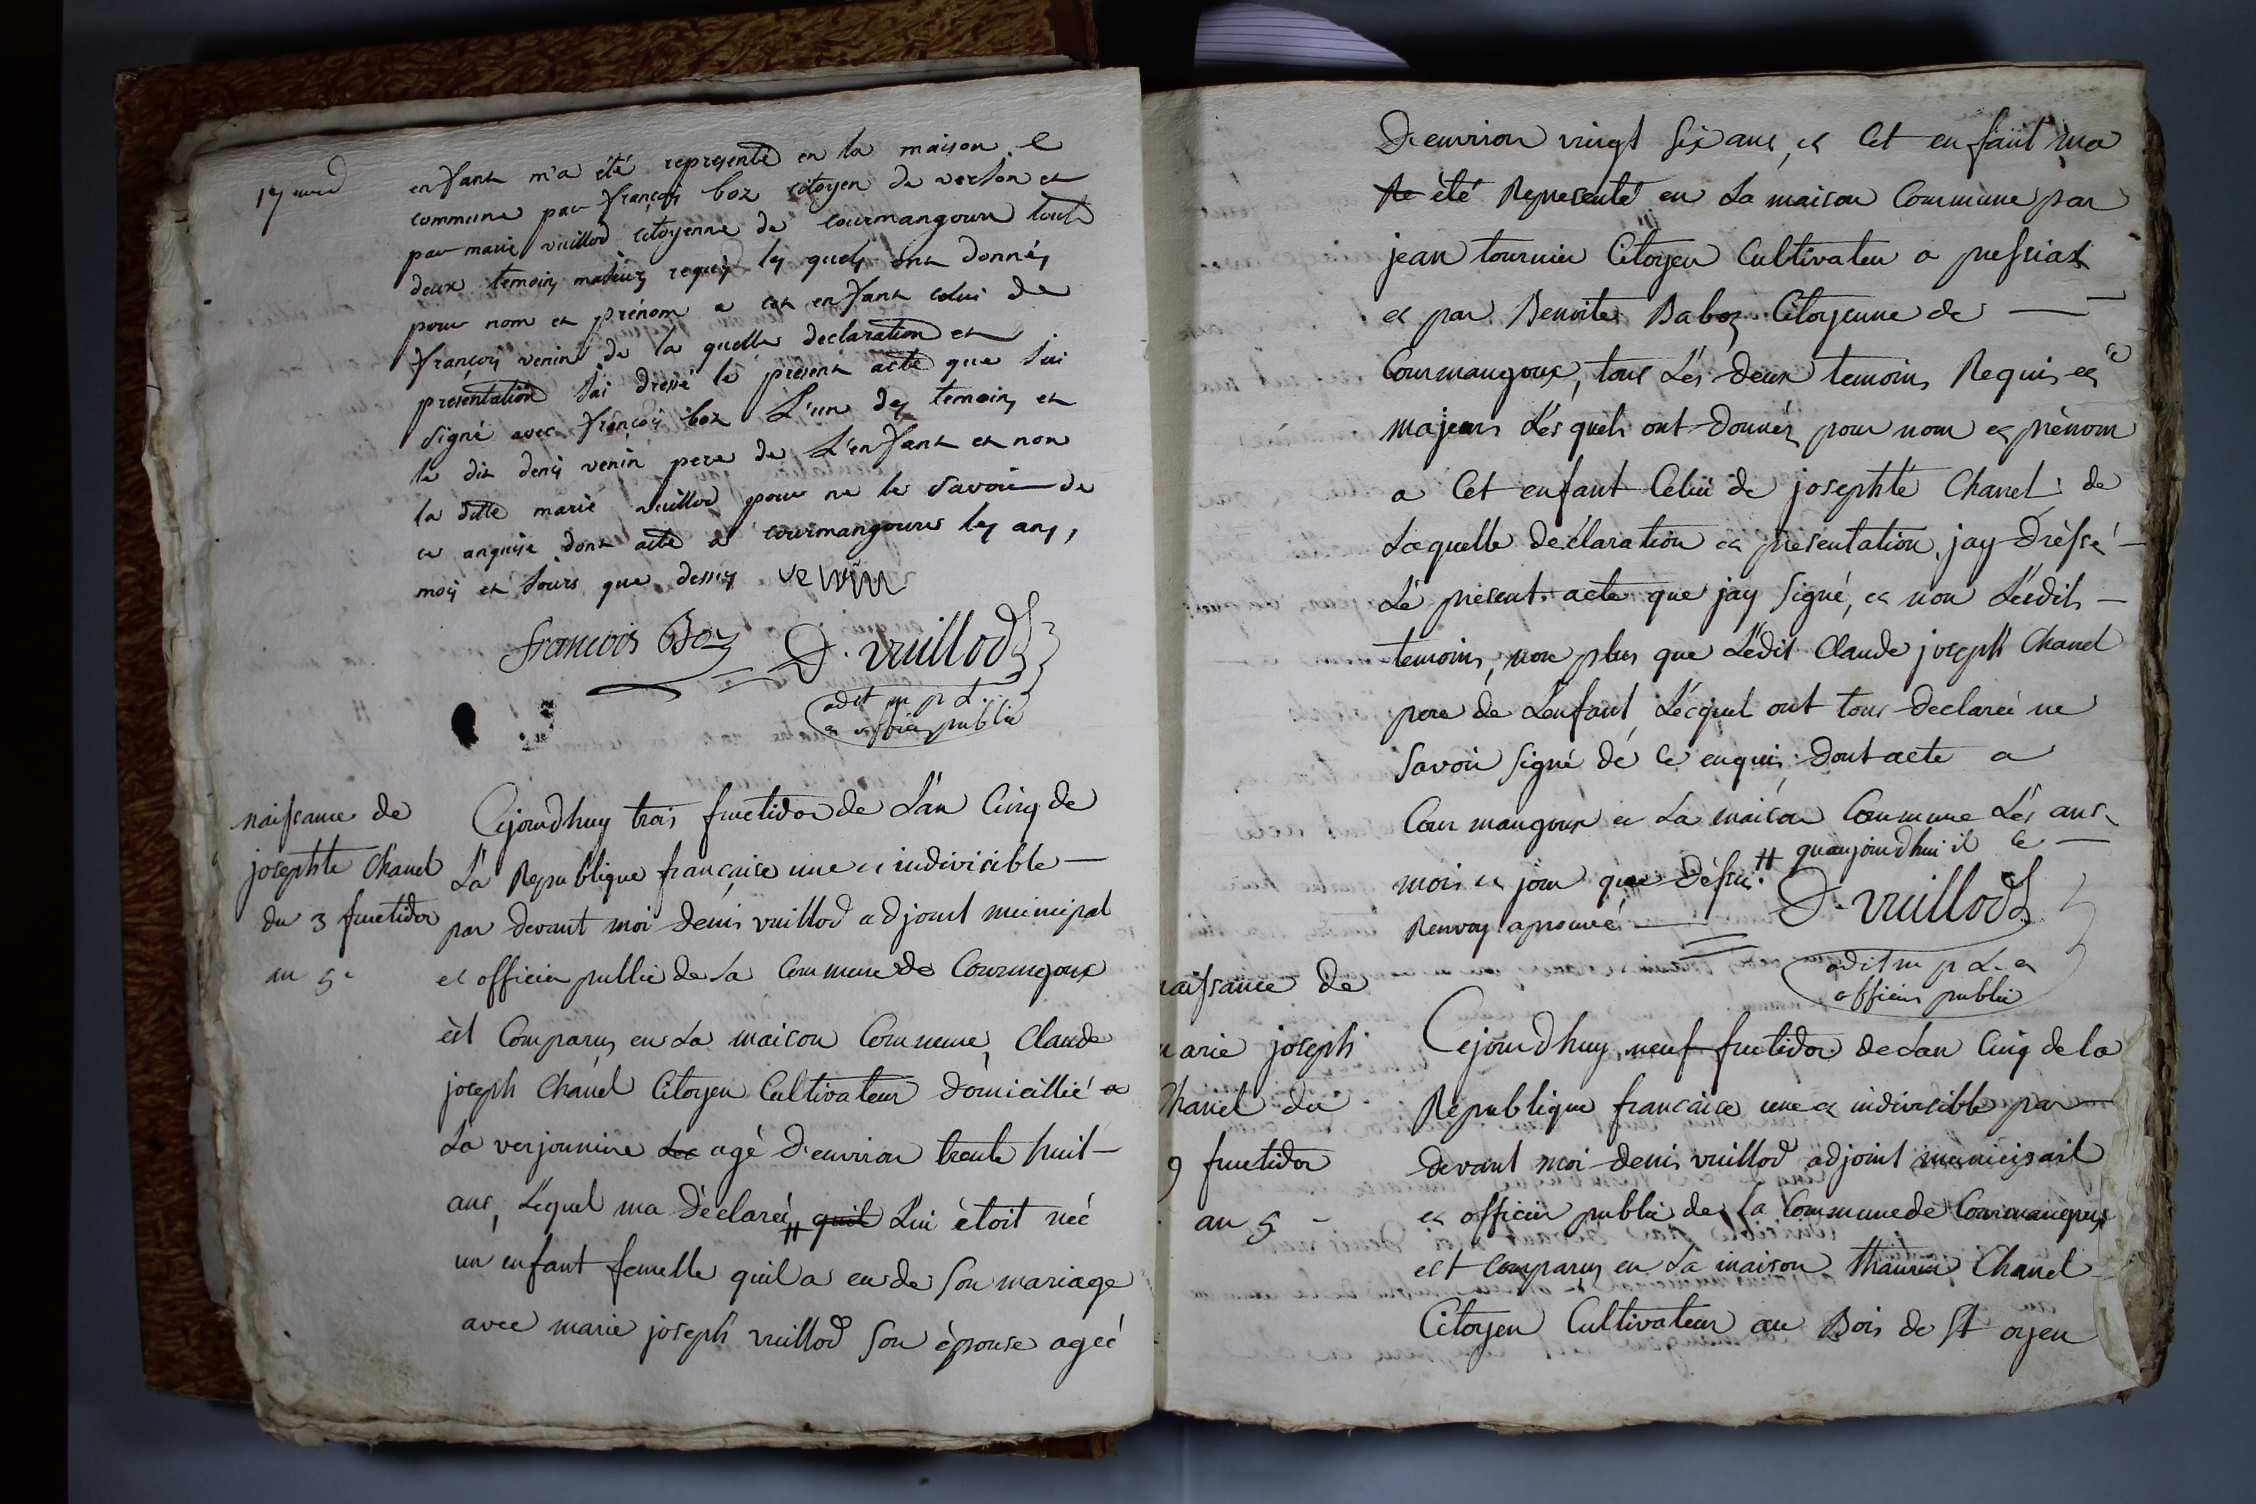 enfant m'a été representé en la maison
commune par françois boz citoyen de verlon et
par marie vuillod citoyenne de courmangoux touts
deux temoins majeurs requis les quels ont donnés
pour nom et prénom a cet enfant celui de
françois venin de la quelle declaration et
presentation j'ai dressé le présent acte que j'ai
signé avec françois boz L'un des temoins et
le dit denis venin pere de L'enfant et non
la ditte marie vuillod pour ne le savoir de
ce enquise dont acte a courmangoux les ans,
mois et jours que dessus venin
francois Boz D. vuillod
adjt m p l
et officier public
naissance de
josephte Chanel
du 3 fructidor
an 5e
Cejourdhuy trois fructidor de L'an Cinq de
La Republique française une et indivisible —
par devant moi denis vuillod adjoint municipal
et officier public de La Commune de Courmgoux
èst Comparus en La maison Commune, Claude
joseph Chanel Citoyen Cultivateur domicillié a
La verjonnire agé d'environ trente huit —
ans, Lequel ma déclareé # quil Lui ètoit néé
un enfant femelle quil a eu de Son mariage
avec marie joseph vuillod Son épouse ageé
D'environ vingt six ans, et Cet enfant ma
Re été Representé en La maison Commune par
jean tournier Citoyen Cultivateur a pressiat
et par Benoite Baboz Citoyenne de —
Courmangoux, tous Les deux temoins Requis et
majeurs Lesquels ont donnéz pour nom et prènom
a Cet enfant Celui de josephte Chanel de
Laquelle déclaration et présentation, jay drèssé —
Lé présent acte que jay signé, et non Lésdits —
temoins, non plus que Lédit Claude joseph Chanel
pere de L'enfant Lécquel ont tous declareé ne
Savoir signé dé Ce enquis, dont acte a
Cour mangoux en La maison Commune Lés ans
mois et jour que dèssus. # quaujourdhui il Ce —
Renvoy aprouvé — D. vuillod
adjt m p L et
officier public
naissance de
marie joseph
Chanel du
9 fructidor
an 5 -
Cejourdhuy, neuf fructidor de Lan Cinq de la
République francaise une et indivisible par —
devant moi denis vuillod adjoint municipail
et officier public de la Commune de Courmangoux
est comparus en La maison Chanel
Citoyen Cultivateur au Bois de St oyen